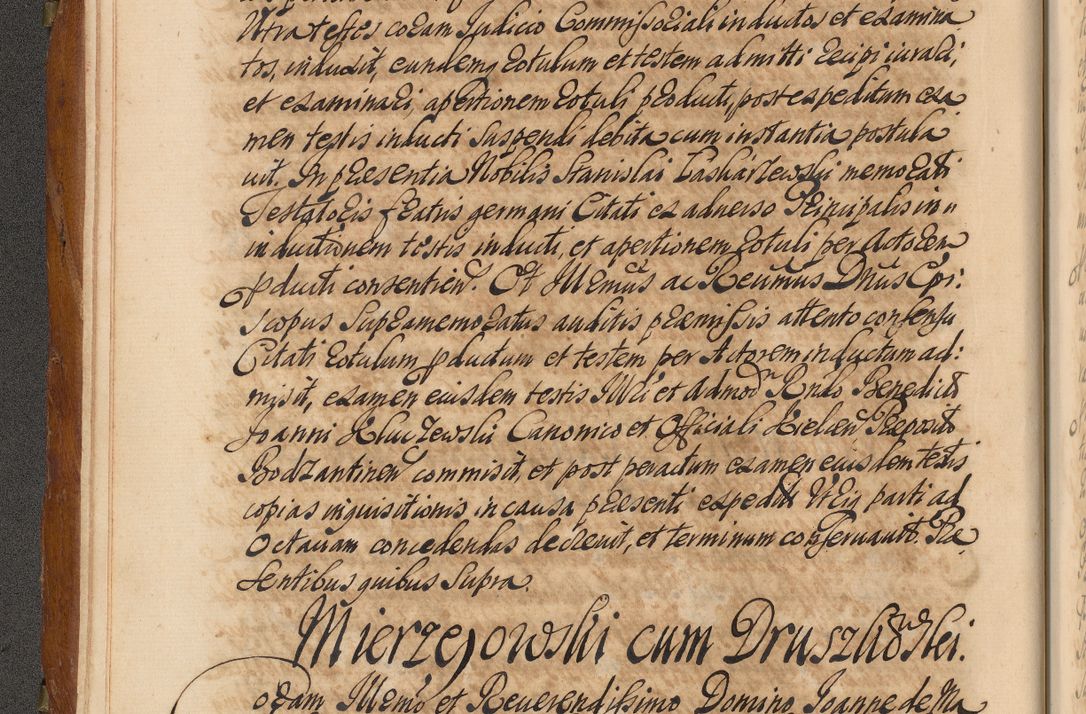 Utra testes coram Judicio Commissoriali inductos et examina
tos, induxit, eundemq rotulum et testem admitti recipi iurari,
et examinari, apertionem rotuli producti, post expeditum exa
men testis inducti suspendi debita cum instantia postula
uit. In præsentia Nobilis Stanislai Laskarzewski memorati
Testatoris fratris germani Citati ex aduerso Principalis in
inductionem testis inducti, et apertionem rotuli per Actorem
pducti consentien. Et Illmus ac Reumus Dnus Epi:
scopus supramemoratus auditis præmissis attento consensu
Citati rotulum pductum et testem per Actorem inductum ad:
misit, examen eiusdem testis Illri et Admodn Rndo Benedicto
Joanni Kluczewski Canonico et Officiali Kielcen Præposito
Bodzantinen commisit, et post peractum examen eiusdem testis
copias inquisitionis in causa præsenti expeditæ Utriq parti ad
Octauam concedendas decreuit, et terminum conseruauit. Præ
sentibus quibus supra.
Mierzejowski cum Druszkowski.
Coram Illmo et Reuerendissimo Domino Joanne de Ma